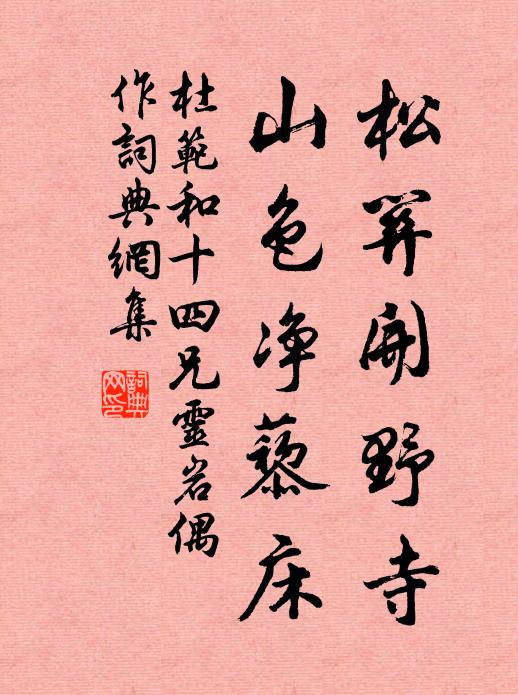 松開野寺
山色净藜床
杜範和十四兄靈岩偶
作詞典網集
詞典
网印